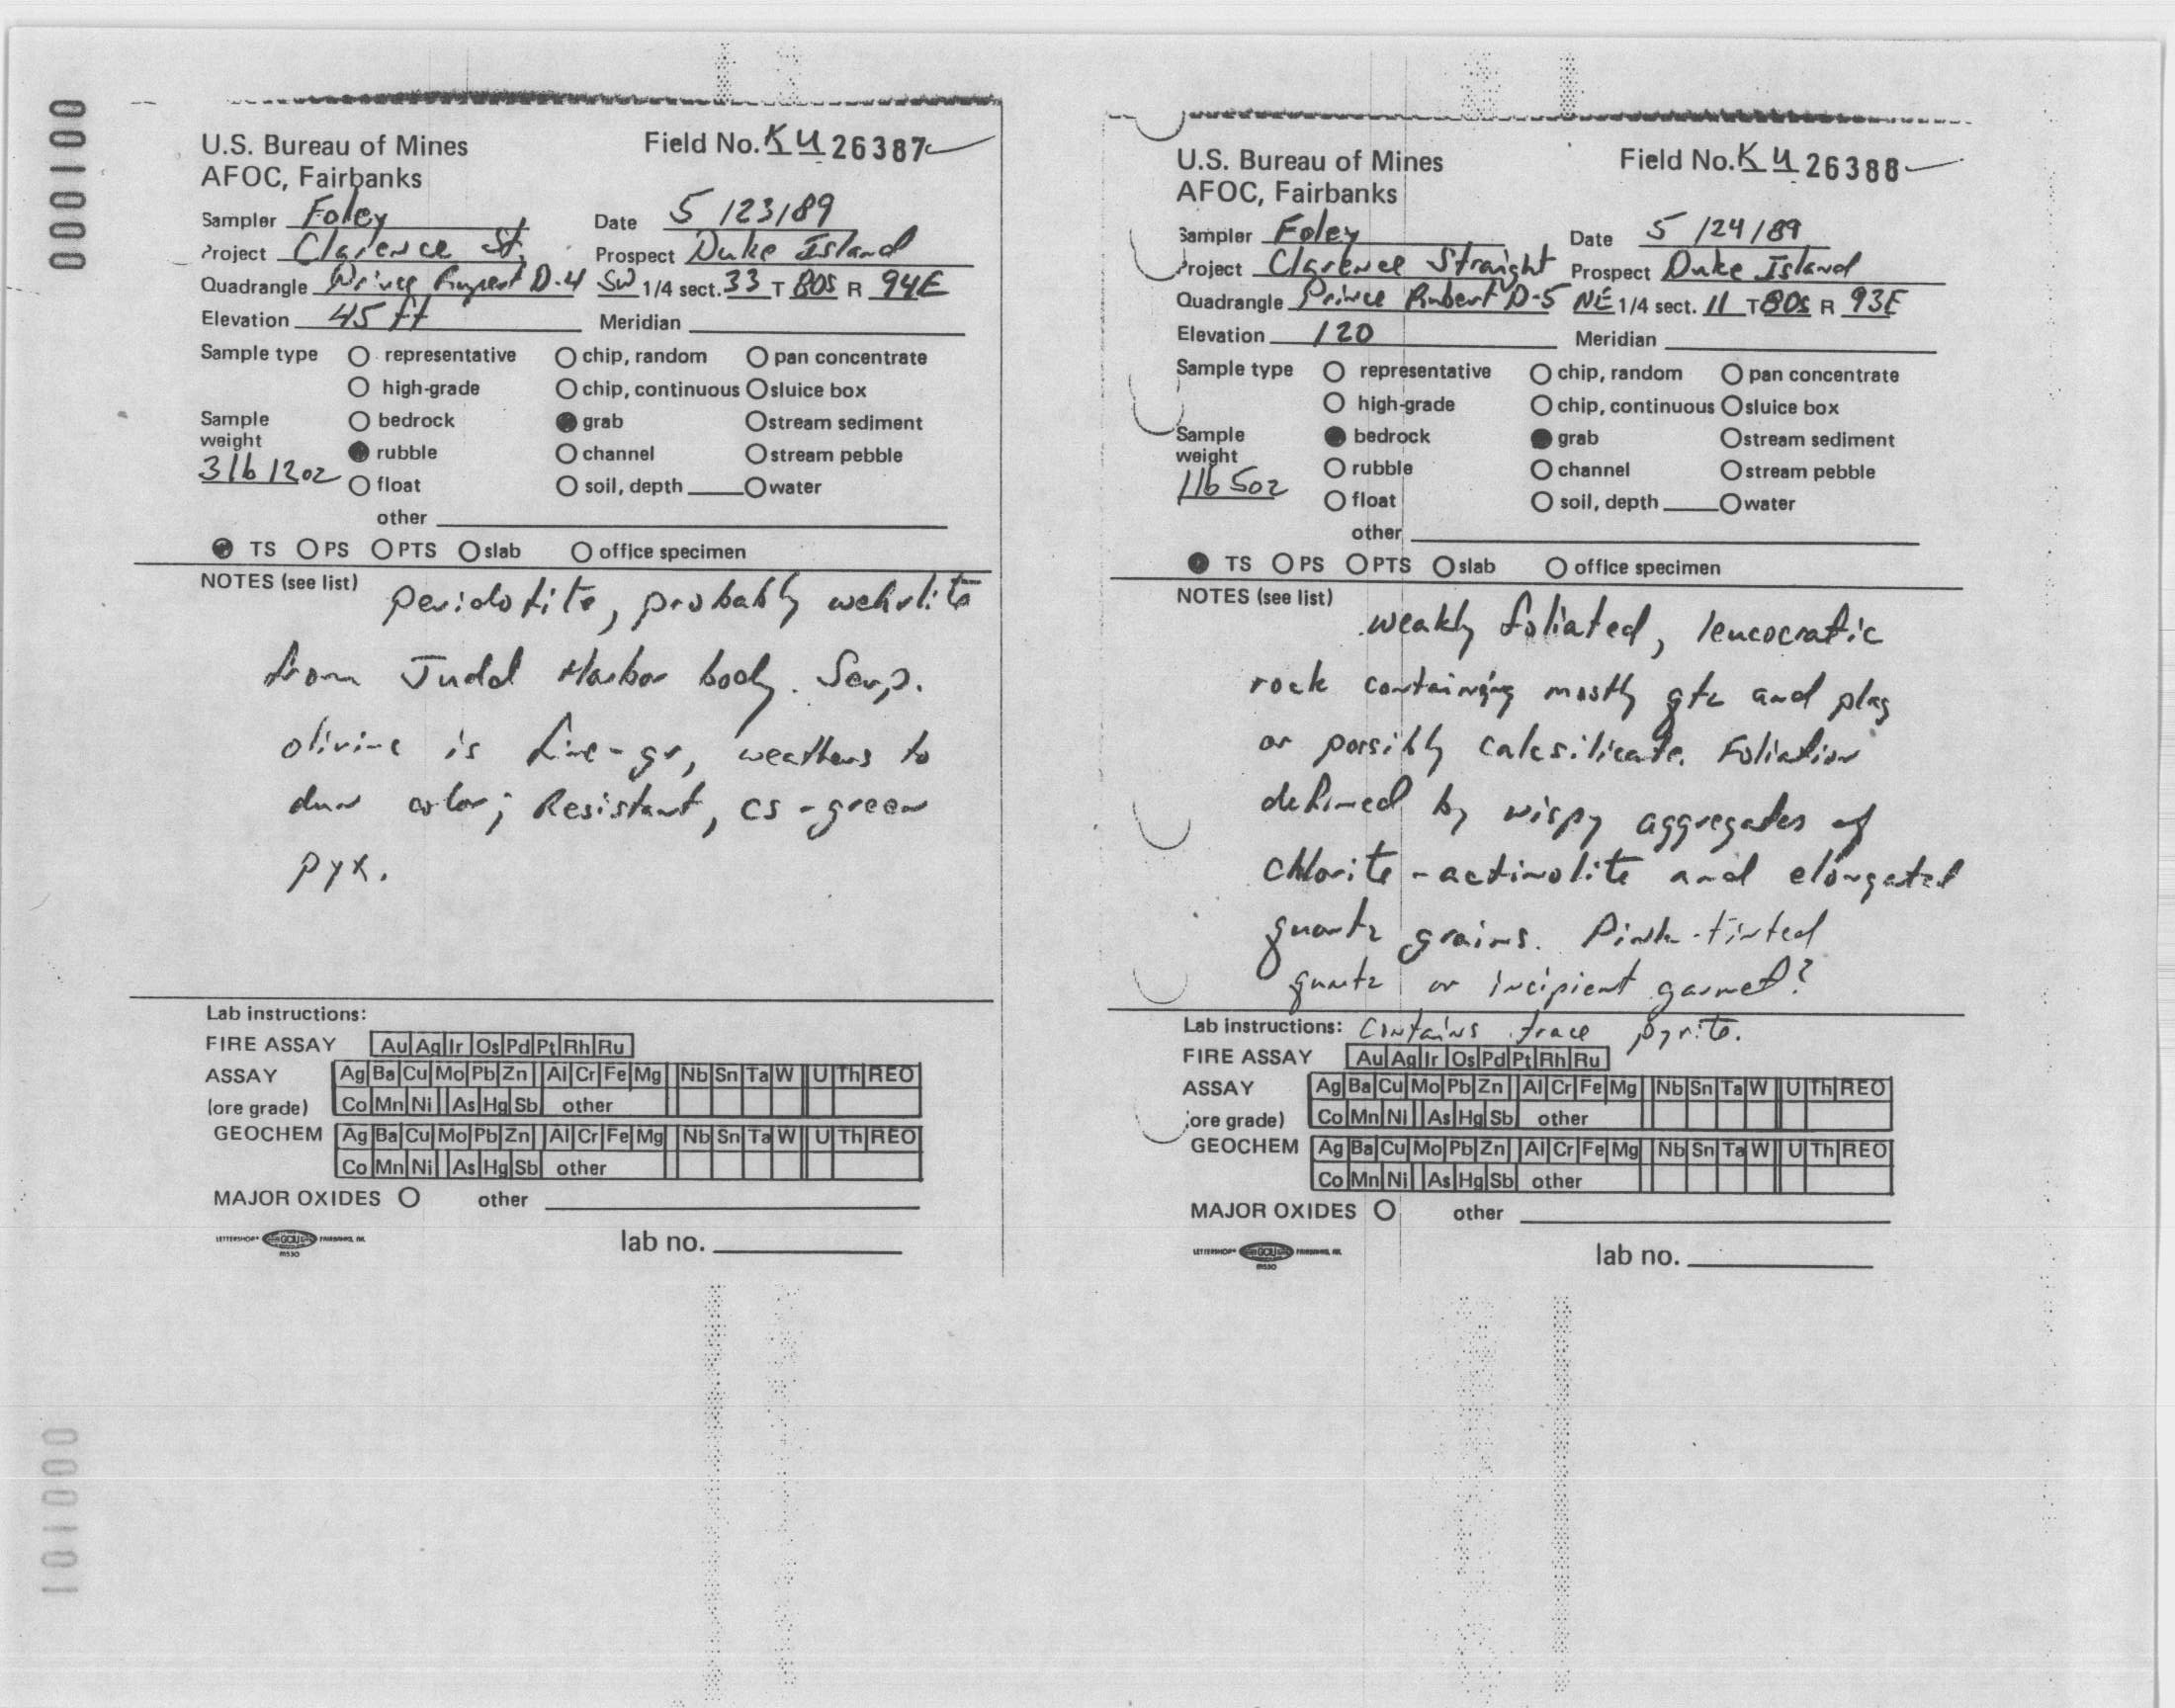 000100
U.S. Bureau of Mines Field No. KU 26387
AFOC, Fairbanks
Sampler Foley Date 5/23/89
Project Clarence St. Prospect Duke Island
Quadrangle Prince Rupert D-4 SW 1/4 sect. 33 T 80S R 94E
Elevation 45 ft Meridian
Sample type representative chip, random pan concentrate
high-grade chip, continuous sluice box
Sample bedrock grab stream sediment
weight rubble channel stream pebble
3lb 12oz float soil, depth water
other
TS PS PTS slab office specimen
NOTES (see list) peridotite, probably wehrlite
from Judd Harbor body. Serp.
olivine is fine-gr, weathers to
dun color; Resistant, cs-green
pyx.
Lab instructions:
FIRE ASSAY Au Ag Ir Os Pd Pt Rh Ru
ASSAY Ag Ba Cu Mo Pb Zn Al Cr Fe Mg Nb Sn Ta W U Th REO
(ore grade) Co Mn Ni As Hg Sb other
GEOCHEM Ag Ba Cu Mo Pb Zn Al Cr Fe Mg Nb Sn Ta W U Th REO
Co Mn Ni As Hg Sb other
MAJOR OXIDES other
LETTERSHOP GCIU FAIRBANKS, AK.
lab no.
U.S. Bureau of Mines Field No. KU 26388
AFOC, Fairbanks
Sampler Foley Date 5/24/89
Project Clarence Straight Prospect Duke Island
Quadrangle Prince Rubert D-5 NE 1/4 sect. 11 T 80S R 93E
Elevation 120 Meridian
Sample type representative chip, random pan concentrate
high-grade chip, continuous sluice box
Sample bedrock grab stream sediment
weight rubble channel stream pebble
1lb 5oz float soil, depth water
other
TS PS PTS slab office specimen
NOTES (see list) weakly foliated, leucocratic
rock containing mostly qtz and plag
or possibly calcsilicate. Foliation
defined by wispy aggregates of
chlorite-actinolite and elongated
quartz grains. Pink-tinted
quartz or incipient garnet?
Lab instructions: Contains trace pyrite.
FIRE ASSAY Au Ag Ir Os Pd Pt Rh Ru
ASSAY Ag Ba Cu Mo Pb Zn Al Cr Fe Mg Nb Sn Ta W U Th REO
(ore grade) Co Mn Ni As Hg Sb other
GEOCHEM Ag Ba Cu Mo Pb Zn Al Cr Fe Mg Nb Sn Ta W U Th REO
Co Mn Ni As Hg Sb other
MAJOR OXIDES other
LETTERSHOP GCIU FAIRBANKS, AK.
lab no.
000101